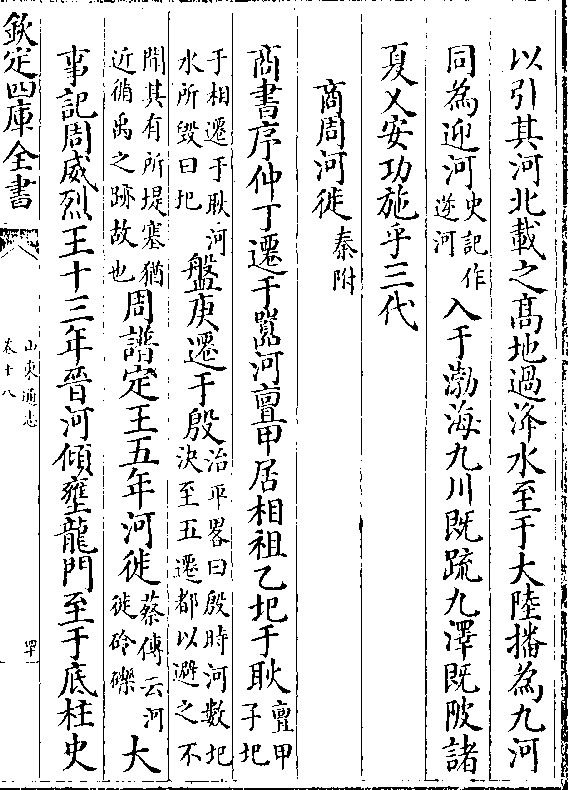 以引其河北載之髙地過洚水至于大陸播為九河
同為迎河史記作逆河入于渤海九川既疏九澤既陂諸
夏乂安功施乎三代
商周河徙秦附
商書序仲丁遷于嚻河亶甲居相祖乙圯于耿亶甲子圯
于相遷于耿河水所毁曰圯盤庚遷于殷治平畧曰殷時河數圯決至五遷都以避之不
聞其有所堤塞猶近循禹之跡故也周譜定王五年河徙蔡傳云河徙砱礫大
事記周威烈王十三年晉河傾壅龍門至于底柱史
欽定四庫全書
山東通志
卷十八